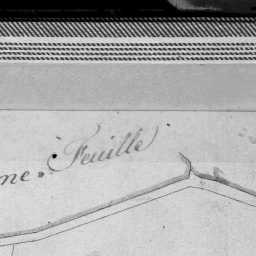 me. Feuille